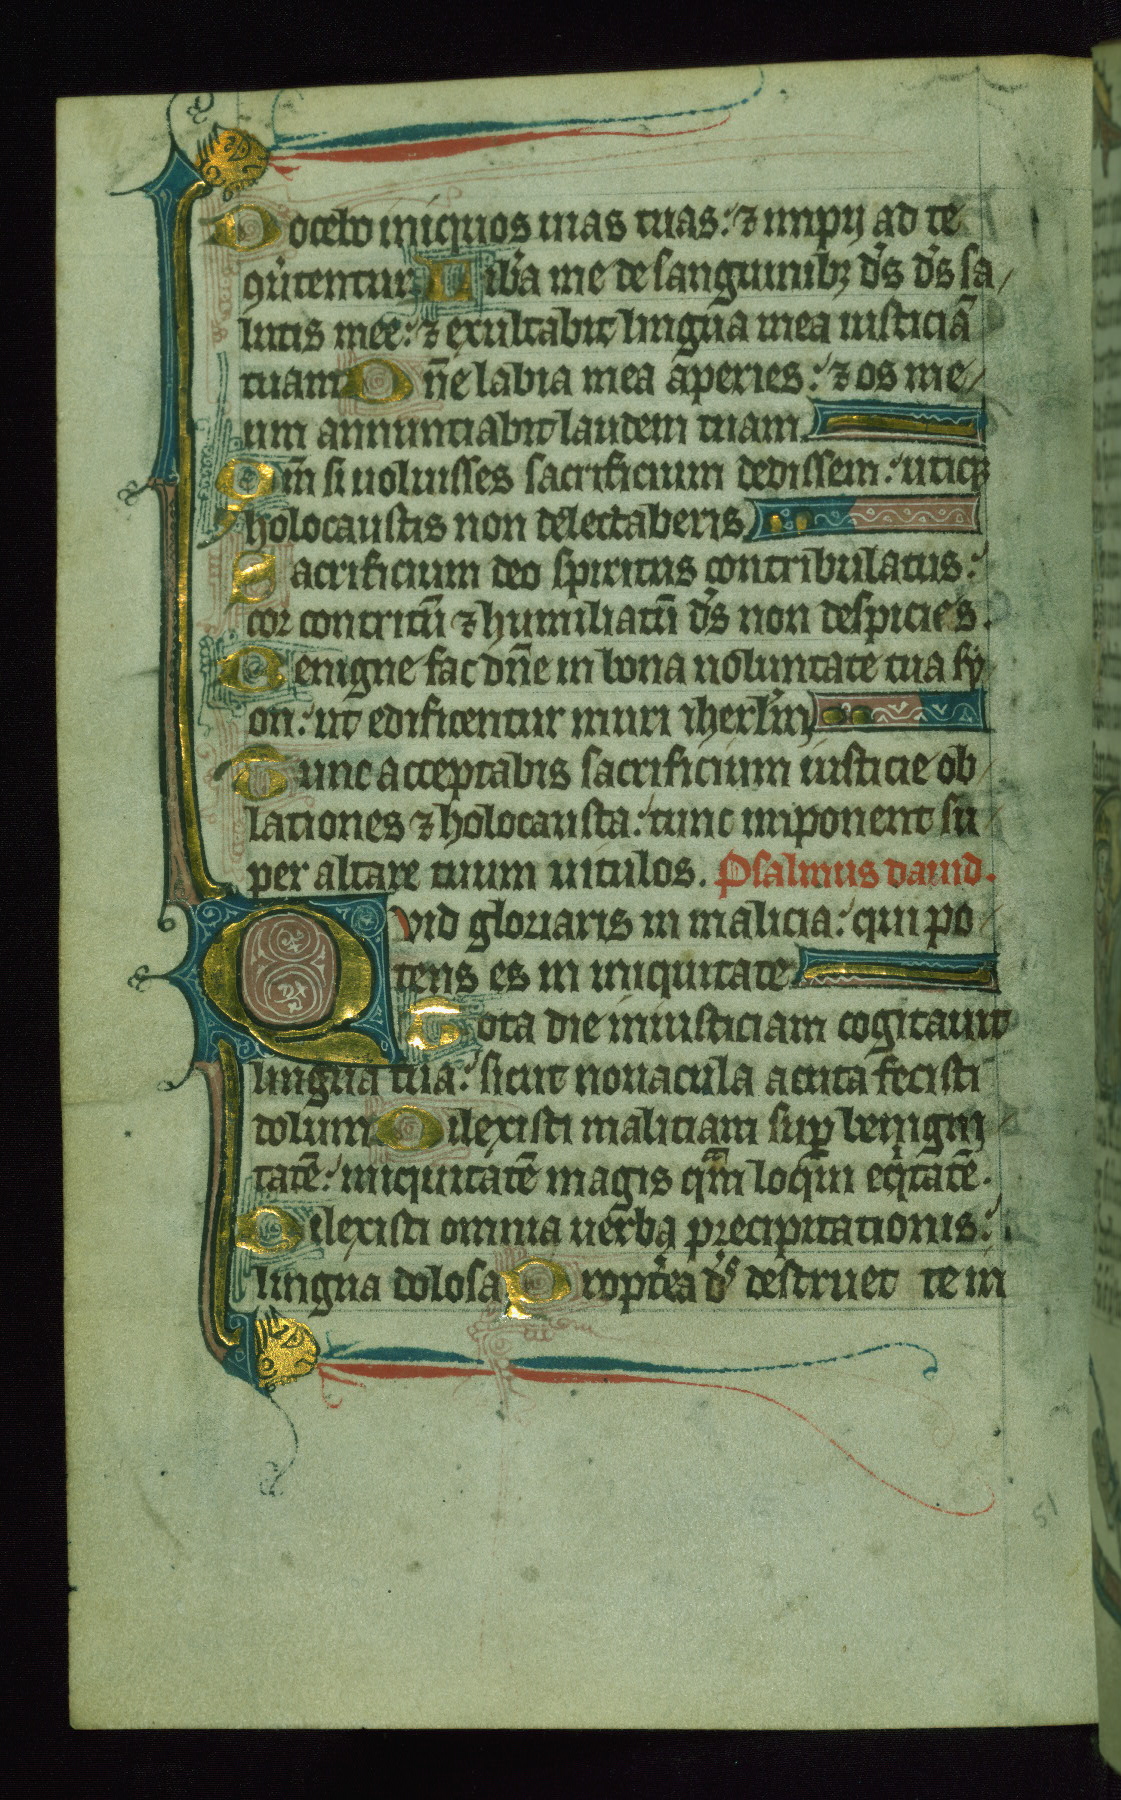 Docebo iniquos uias tuas: ⁊ impij ad te
qu̓tentur. Lib̓a me de sanguinib; d̓s d̓s sa/
lutis mee: ⁊ exultabit lingua mea iusticiā
tuam Dn̄e labia mea aperies: ⁊ os me/
um annuntiabit laudem tuam.
Qm̄ si uoluisses sacrificium dedissem: utiqꝫ
holocaustis non delectaberis
Sacrificium deo spiritus contribulatus:
cor contritū ⁊ humiliatū d̓s non despicies.
Benigne fac dn̄e in bona uoluntate tua sy
on: ut edificentur muri iherl̓m
Tunc acceptabis sacrificium iusticie ob
lationes ⁊ holocausta: tunc imponent su
per altare tuum uitulos. Psalmus dauid.
Qvid gloriaris in malicia: qui po
tens es in iniquitate
Tota die iniusticiam cogitauit
lingua tua: sicut nouacula acuta fecisti
dolum Dilexisti maliciam suꝑ benigni
tatē: iniquitatē magis qm̄ loqui eqitatē.
Dilexisti omnia uerba precipitationis:
lingua dolosa Propt̓ea d̓s destruet te in
51